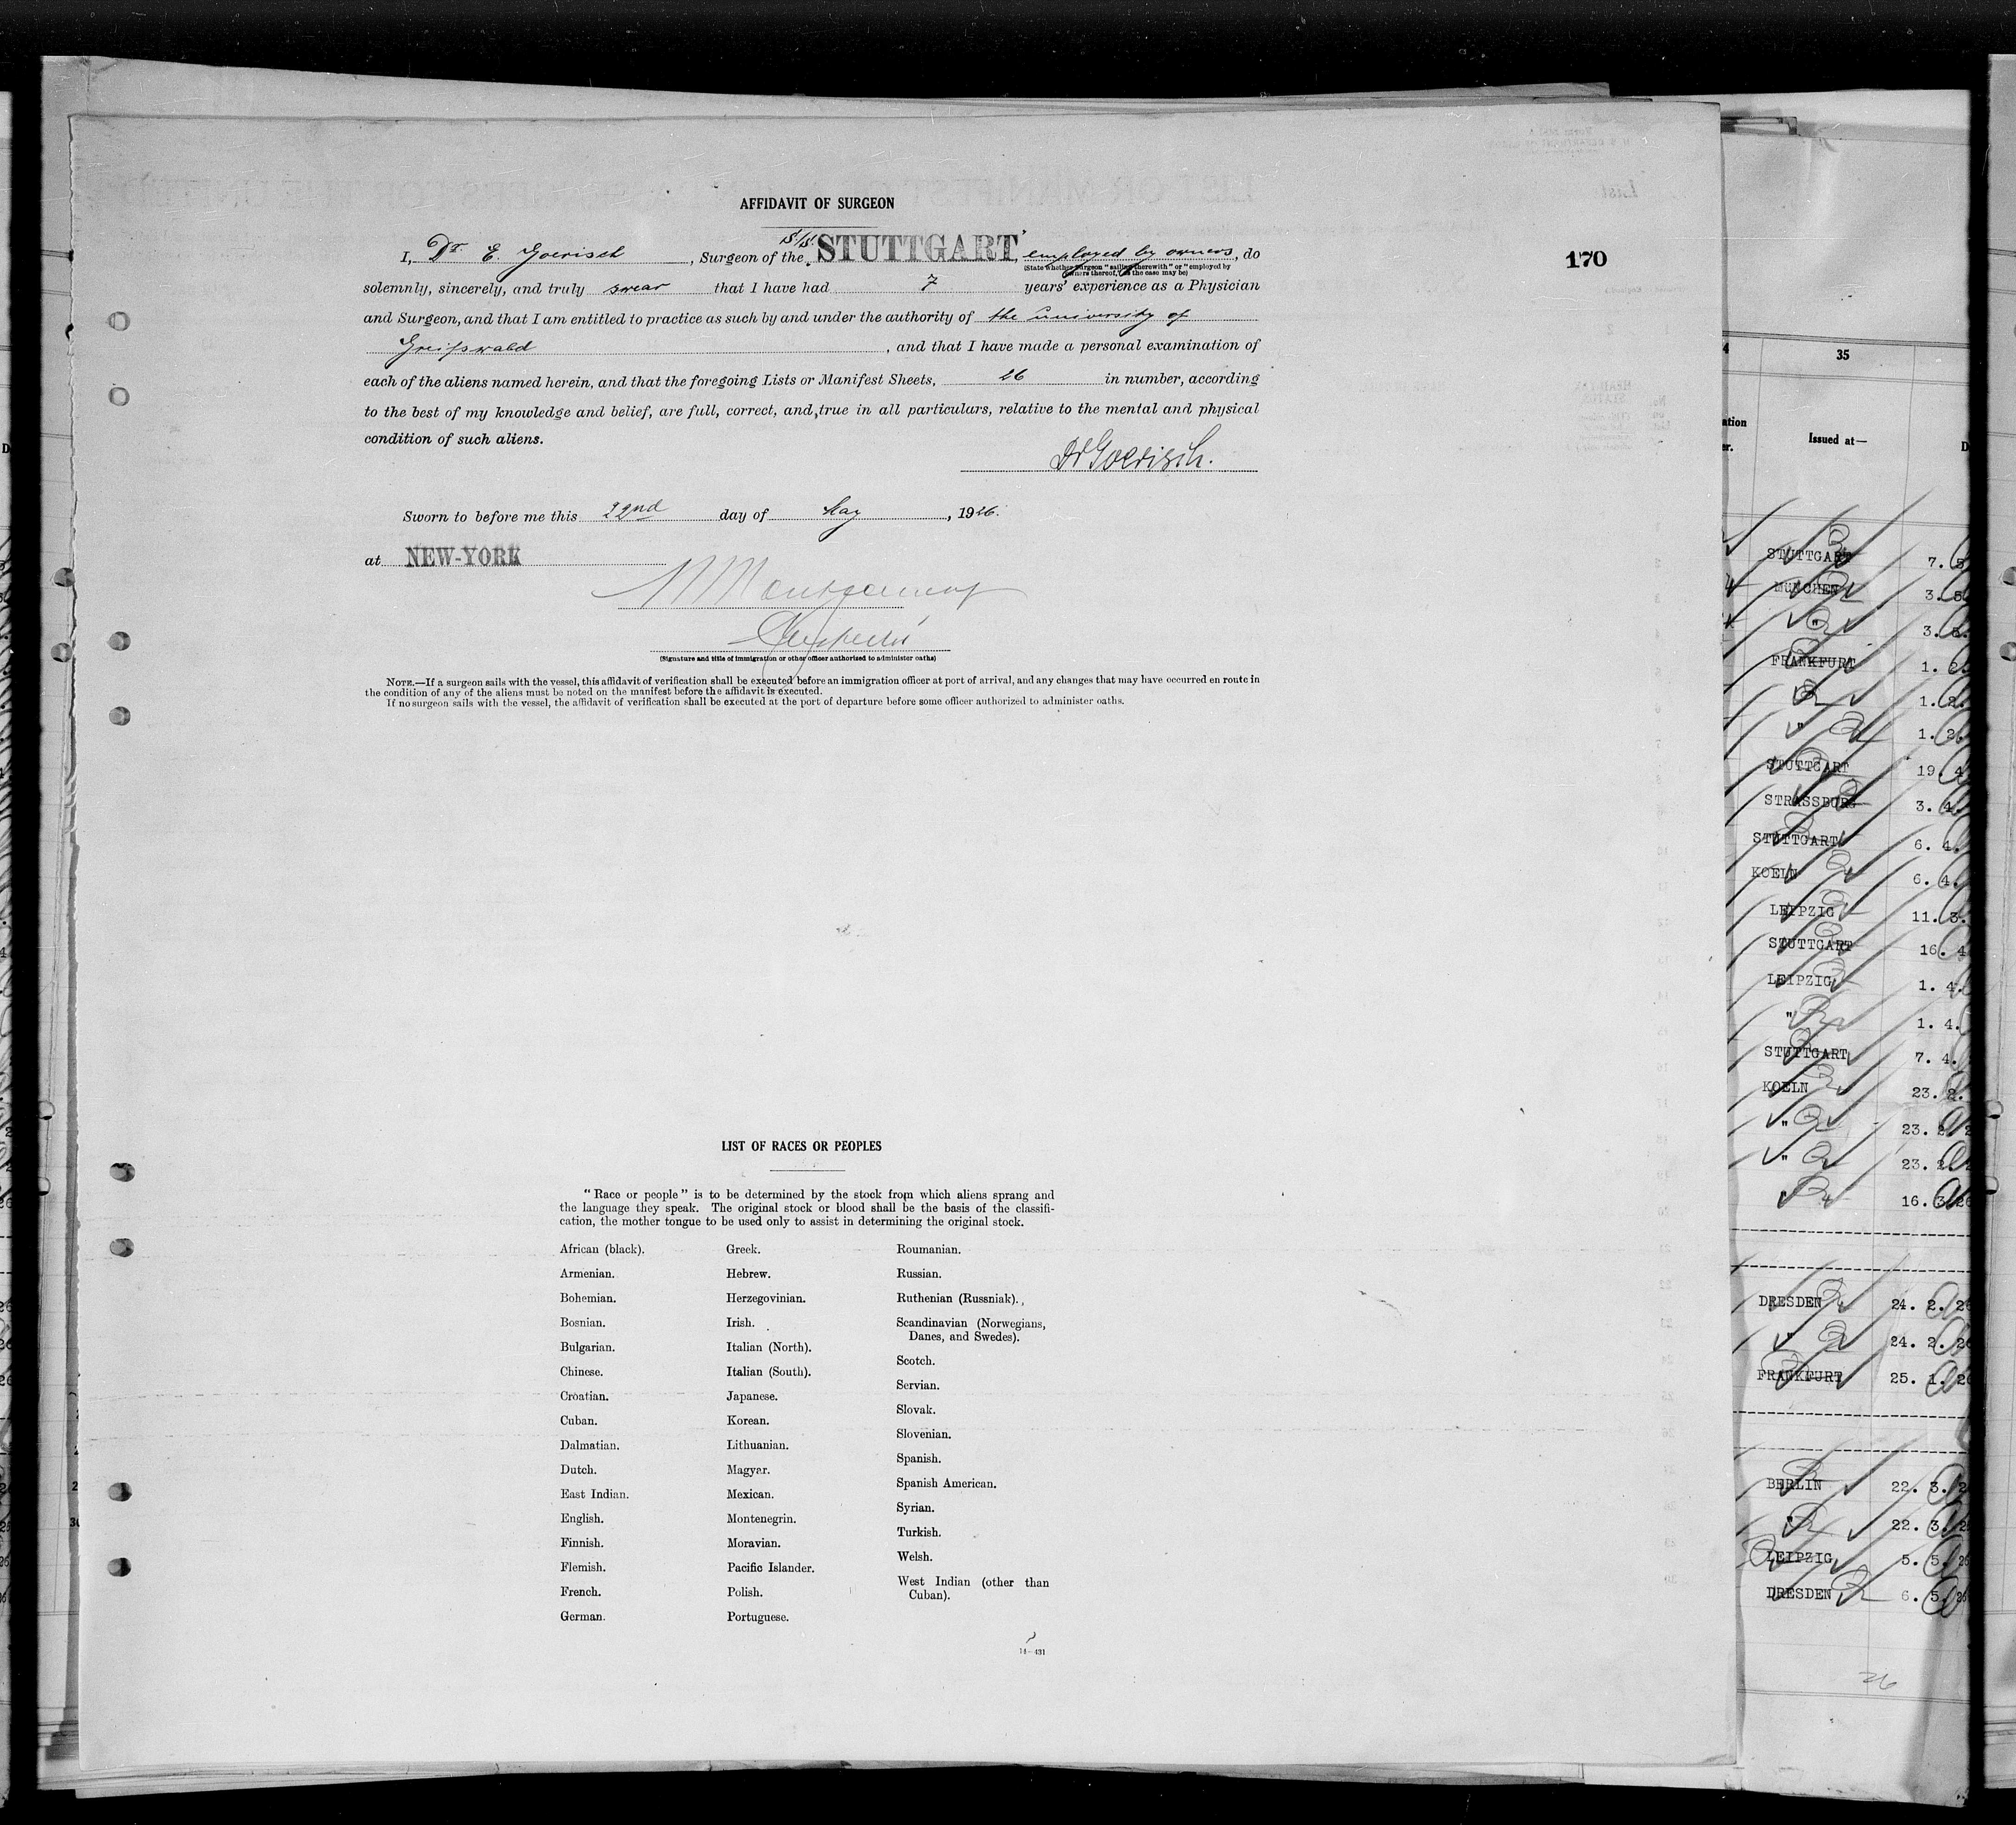 AFFIDAVIT OF SURGEON
I, Dr. E. Goerisch, Surgeon of the S/S. "STUTTGART", employed by owners, do
(State whether surgeon "sailing therewith" or "employed by
owners thereof," as the case may be)
solemnly, sincerely, and truly swear that I have had 7 years' experience as a Physician
and Surgeon, and that I am entitled to practice as such by and under the authority of the university of
Greifswald, and that I have made a personal examination of
each of the aliens named herein, and that the foregoing Lists or Manifest Sheets, 26 in number, according
to the best of my knowledge and belief, are full, correct, and true in all particulars, relative to the mental and physical
condition of such aliens.
Dr Goerisch.
Sworn to before me this 22nd day of May, 1926.
at NEW-YORK
Montgomery
Inspector
(Signature and title of immigration or other officer authorized to administer oaths)
NOTE.—If a surgeon sails with the vessel, this affidavit of verification shall be executed before an immigration officer at port of arrival, and any changes that may have occurred en route in
the condition of any of the aliens must be noted on the manifest before the affidavit is executed.
If no surgeon sails with the vessel, the affidavit of verification shall be executed at the port of departure before some officer authorized to administer oaths.
170
LIST OF RACES OR PEOPLES
"Race or people" is to be determined by the stock from which aliens sprang and
the language they speak. The original stock or blood shall be the basis of the classifi-
cation, the mother tongue to be used only to assist in determining the original stock.
African (black).
Armenian.
Bohemian.
Bosnian.
Bulgarian.
Chinese.
Croatian.
Cuban.
Dalmatian.
Dutch.
East Indian.
English.
Finnish.
Flemish.
French.
German.
Greek.
Hebrew.
Herzegovinian.
Irish.
Italian (North).
Italian (South).
Japanese.
Korean.
Lithuanian.
Magyar.
Mexican.
Montenegrin.
Moravian.
Pacific Islander.
Polish.
Portuguese.
Roumanian.
Russian.
Ruthenian (Russniak).
Scandinavian (Norwegians,
Danes, and Swedes).
Scotch.
Servian.
Slovak.
Slovenian.
Spanish.
Spanish American.
Syrian.
Turkish.
Welsh.
West Indian (other than
Cuban).
14—431
35
Issued at—
STUTTGART 7. 5
MüNCHEN 3. 5
" 3. 5.
FRANKFURT 1. 2.
" 1. 2.
" 1. 2.
STUTTGART 19. 4
STRASSBURG 3. 4.
STUTTGART 6. 4.
KOELN 6. 4.
LEIPZIG 11. 3.
STUTTGART 16. 4
LEIPZIG 1. 4.
" 1. 4.
STUTTGART 7. 4.
KOELN 23. 2.
" 23. 2. 2
" 23. 2. 2
" 16. 3. 26
DRESDEN 24. 2. 26
" 24. 2. 26
FRANKFURT 25. 1. 26
BERLIN 22. 3. 2
" 22. 3. 2
LEIPZIG 5. 5. 26
DRESDEN 6. 5. 26
26